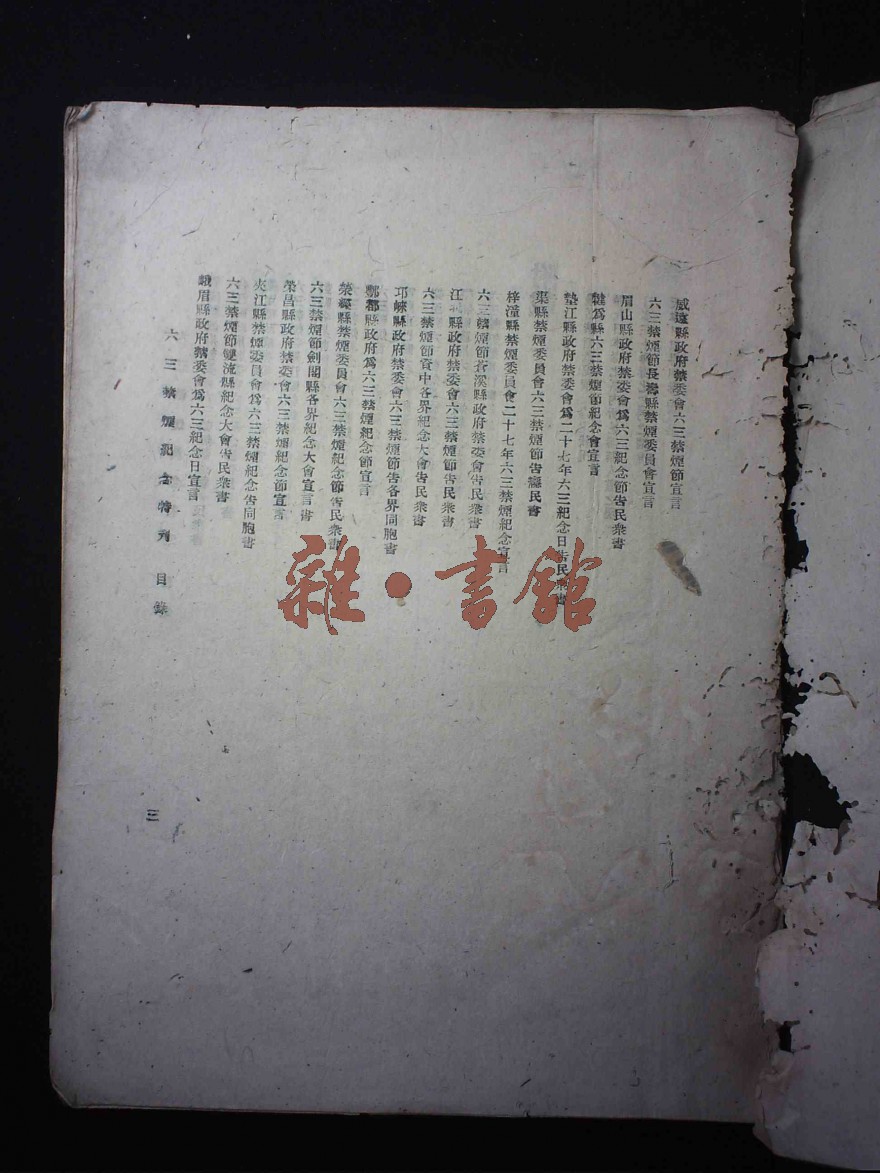 威遠縣政府禁委會六三禁煙節宣言
六三禁煙節長壽縣禁煙委員會宣言
眉山縣政府禁委會爲六三紀念節告民衆書
犍爲縣六三禁煙節紀念會宣言
墊江縣政府禁委會爲二十七年六三紀念日告民衆書
渠縣禁煙委員會六三禁煙節告癮民書
梓潼縣禁煙委員會二十七年六三禁煙紀念宣言
六三禁煙節蒼溪縣政府禁委會告民衆書
江北縣政府禁委會六三禁煙節告民衆書
六三禁煙節資中各界紀念大會告民衆書
邛崍縣政府禁委會六三禁煙節告各界同胞書
酆都縣政府爲六三禁煙紀念節宣言
縣禁煙委員會六三禁煙紀念節告民衆書
六三禁煙節劍閣縣各界紀念大會宣言書
榮昌縣政府禁委會六三禁煙紀念節宣言
夾江縣禁煙委員會爲六三禁煙紀念告同胞書
六三禁煙節雙流縣紀念大會告民衆書
峨眉縣政府禁委會爲六三紀念日宣言
六三禁煙紀念特刋 目錄
三
雜·書館